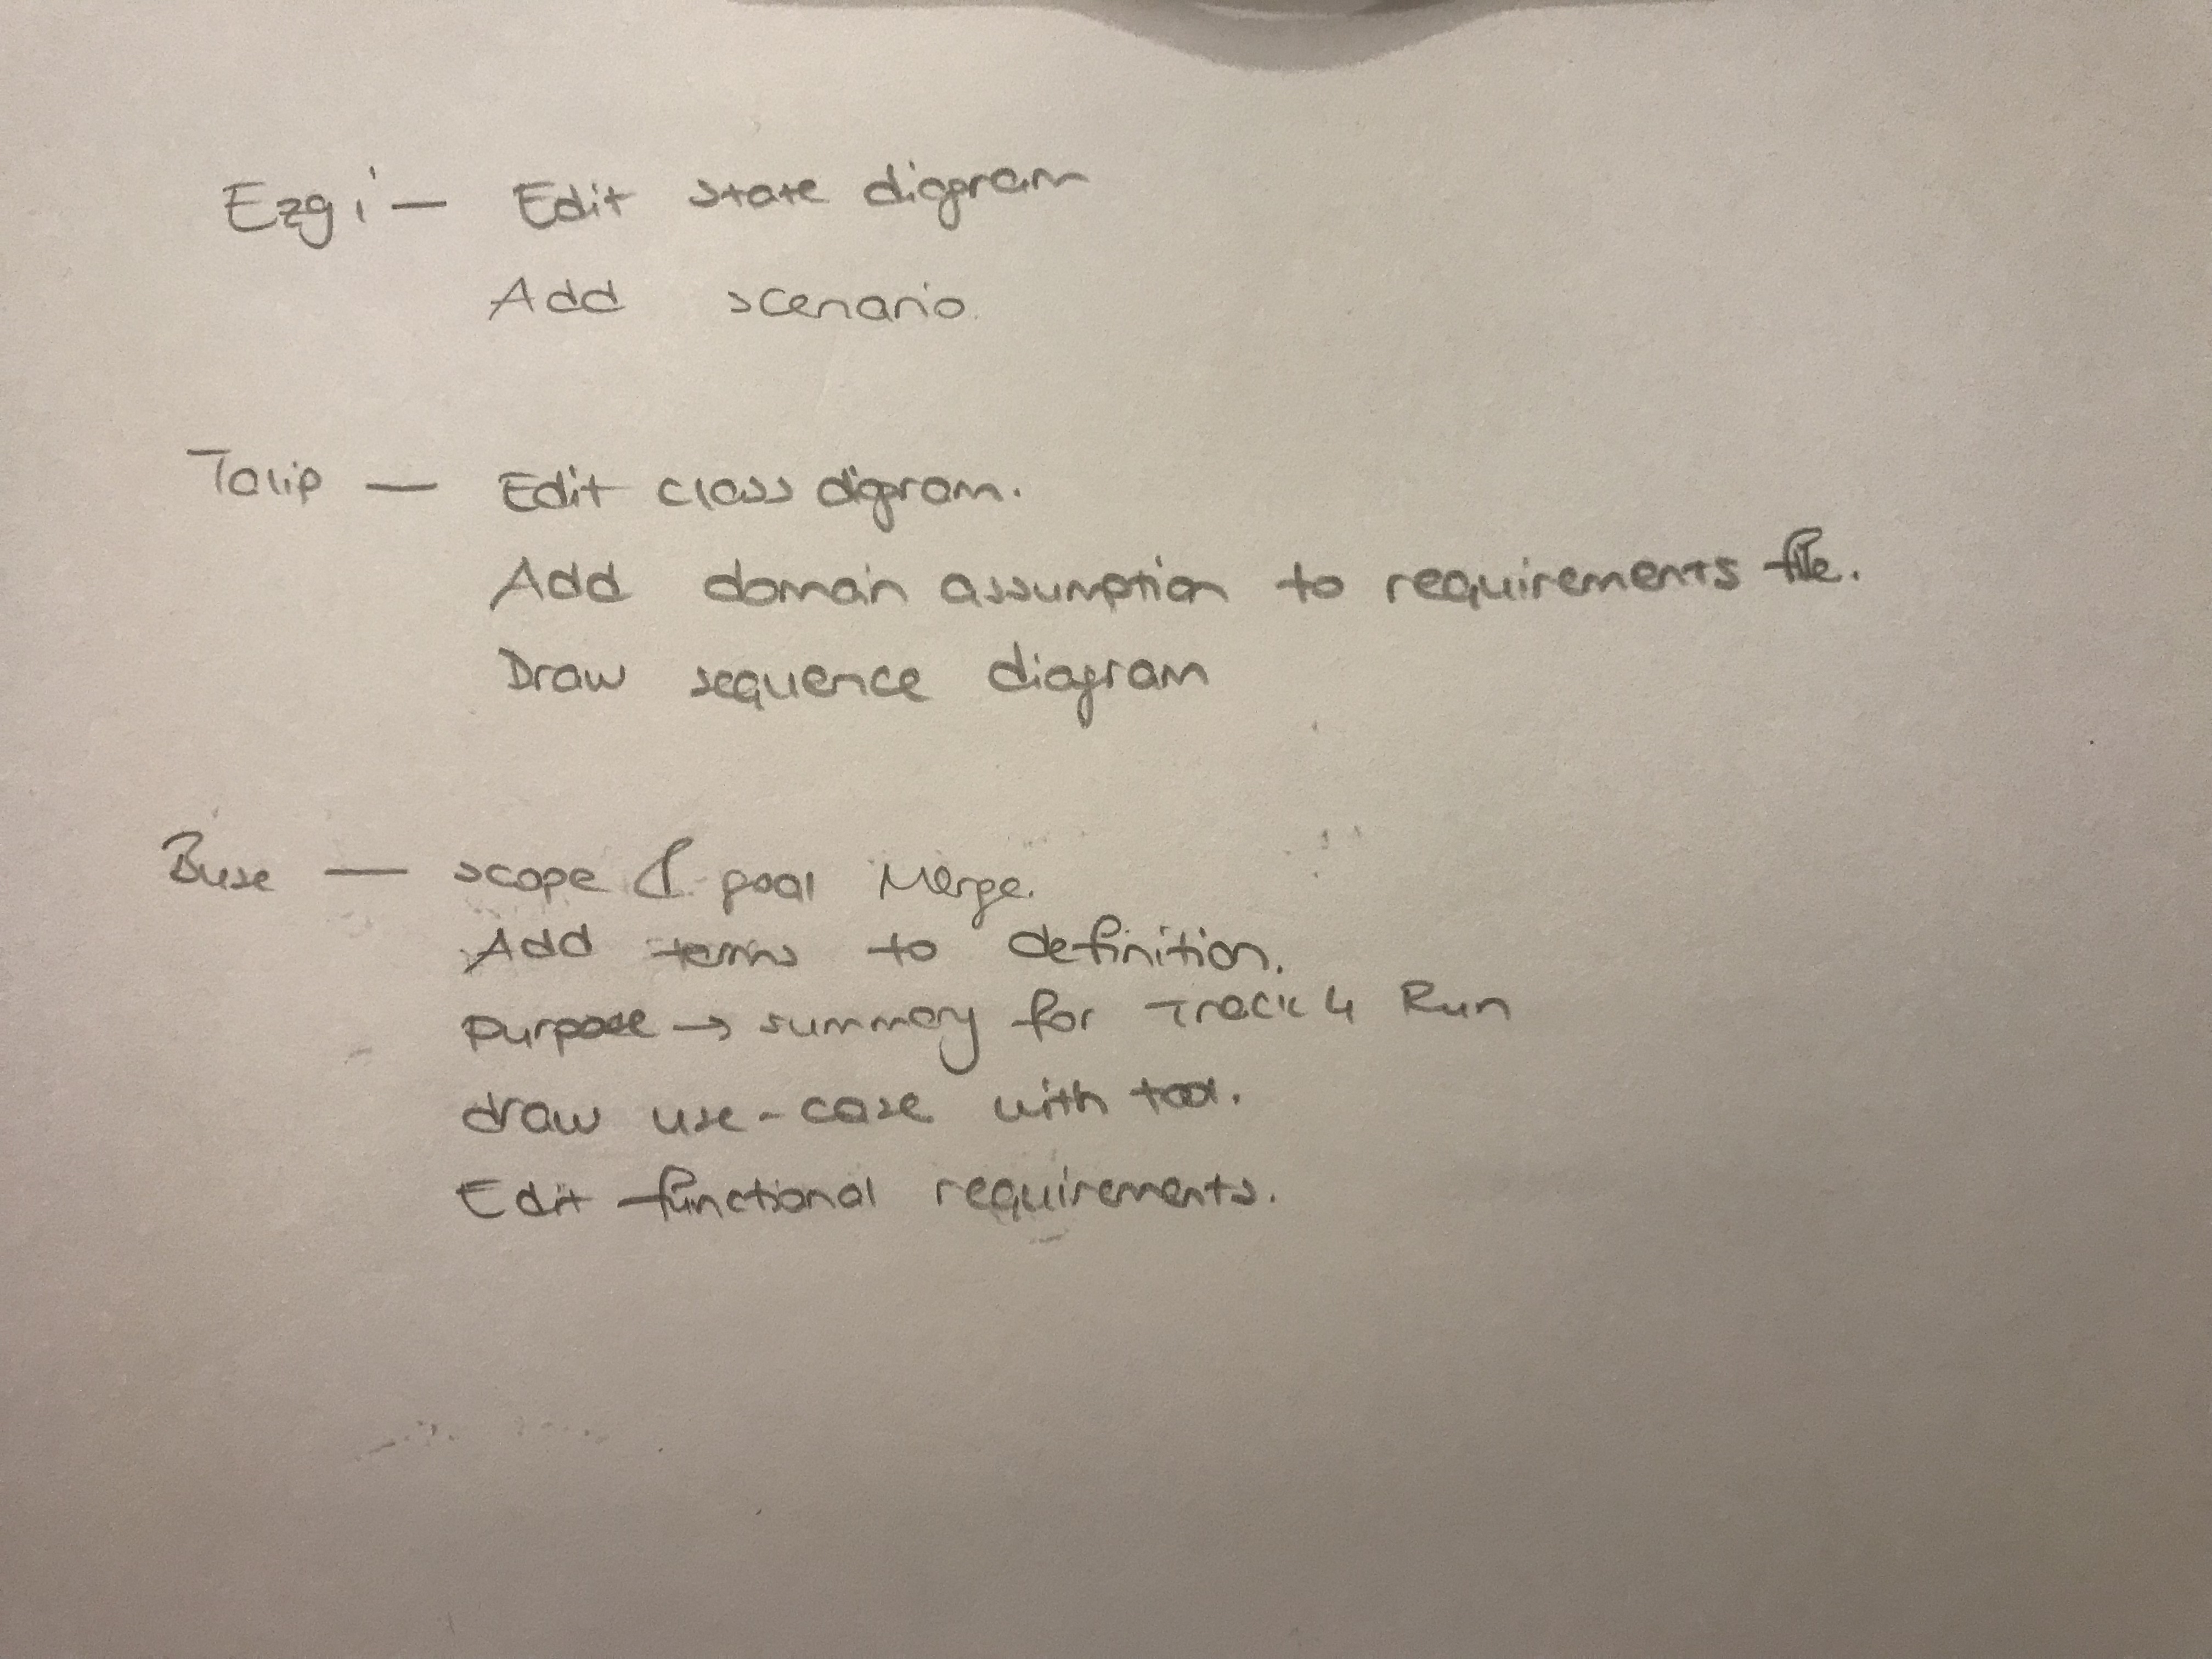 Ezgi — Edit state digram
Add scenario.
Talip — Edit class digram.
Add domain assumption to requirements file.
Draw sequence diagram
Buse — scope & goal Merge.
Add terms to definition.
purpose → summary for Track 4 Run
draw use-case with tool.
Edit functional requirements.